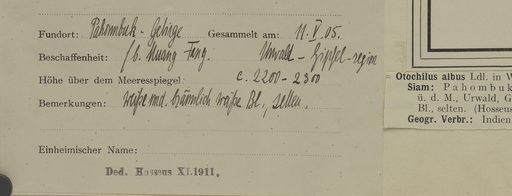 Fundort: Pahombuk - Gebirge Gesammelt am: 11. V. 05.
Beschaffenheit: / b. Muang Fang. Urwald - Gipfel-region
Höhe über dem Meeresspiegel: c. 2200-2300
Bemerkungen: weiße und bräunlich weiße Bl., selten.
Einheimischer Name:
Ded. Hosseus XI. 1911.
= Otochilus albus Ldl. in W
Siam: Pahombuk
ü. d. M., Urwald, G
Bl., selten. (Hosseus
Geogr. Verbr.: Indien